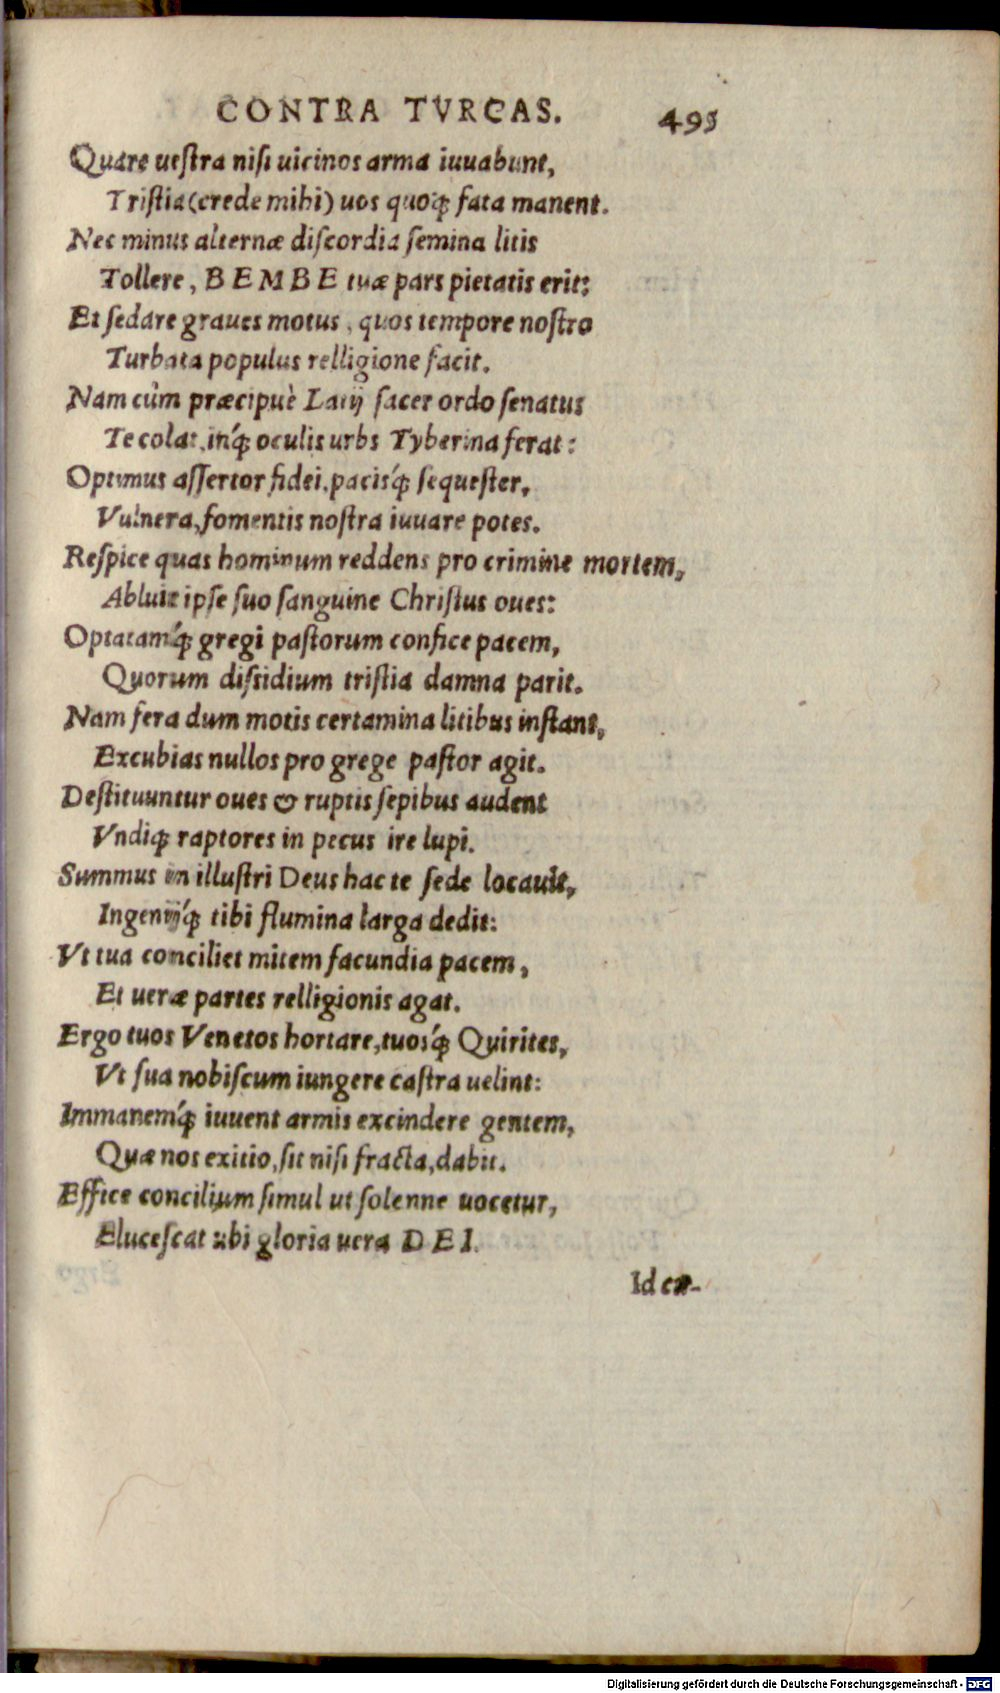 CONTRA TVRCAS. 495
Quare ueſtra niſi uicinos arma iuuabunt,
Triſtia (crede mihi) uos quoq́ꝫ fata manent.
Nec minus alternæ diſcordia ſemina litis
Tollere, BEMBE tuæ pars pietatis erit:
Et ſedare graues motus, quos tempore noſtro
Turbata populus relligione facit.
Nam cùm præcipuè Latij ſacer ordo ſenatus
Te colat, inq́ꝫ oculis urbs Tyberina ferat:
Optimus aſſertor fidei, pacisq́ꝫ ſequeſter,
Vulnera, fomentis noſtra iuuare potes.
Reſpice quas hominum reddens pro crimine mortem,
Abluit ipſe ſuo ſanguine Chriſtus oues:
Optatamq́ꝫ gregi paſtorum confice pacem,
Quorum diſsidium triſtia damna parit.
Nam fera dum motis certamina litibus inſtant,
Excubias nullos pro grege paſtor agit.
Deſtituuntur oues & ruptis ſepibus audent
Vndiqꝫ raptores in pecus ire lupi.
Summus in illuſtri Deus hac te ſede locauit,
Ingenijq́ꝫ tibi flumina larga dedit:
Vt tua conciliet mitem facundia pacem,
Et ueræ partes relligionis agat.
Ergo tuos Venetos hortare, tuosq́ꝫ Quirites,
Vt ſua nobiſcum iungere caſtra uelint:
Immanemq́ꝫ iuuent armis excindere gentem,
Quæ nos exitio, ſit niſi fracta, dabit.
Effice concilium ſimul ut ſolenne uocetur,
Eluceſcat ubi gloria uera DEI.
Id ex-
Digitalisierung gefördert durch die Deutsche Forschungsgemeinschaft - DFG